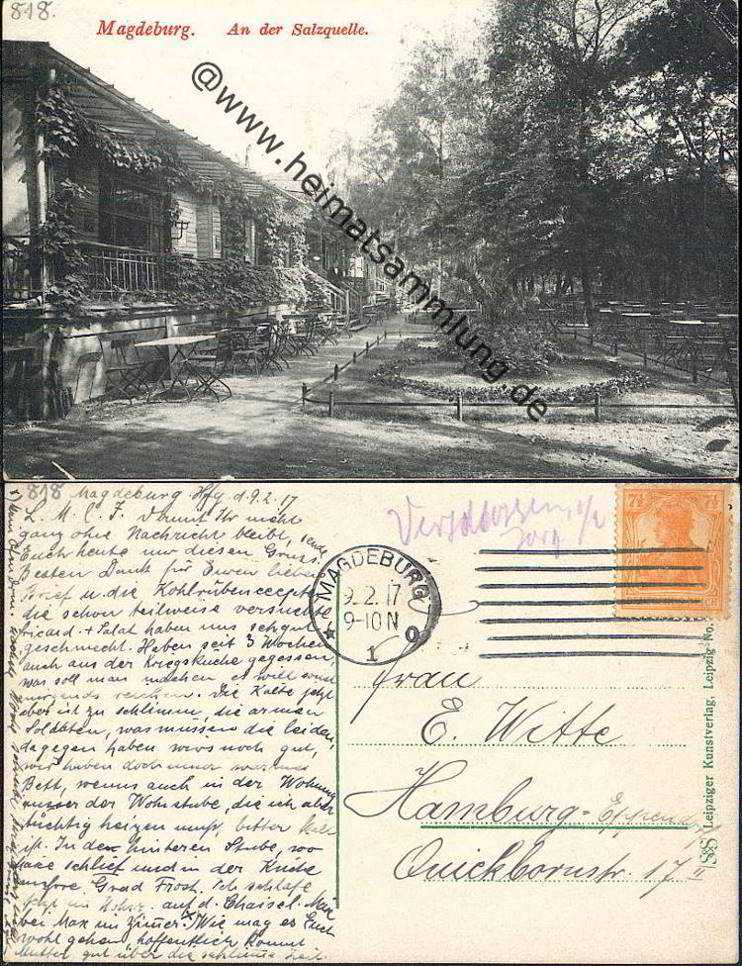 818.
Magdeburg. An der Salzquelle.
@www.heimatsammlung.de
818 Magdeburg d. 9.2.17
L. M. & F. Damit Ihr nicht
ganz ohne Nachricht bleibt, sende
Euch heute nur diesen Gruss.
Besten Dank für Euren lieben
Brief u. die Kohlrübenrecepte
die schon teilweise versucht
+ Salat haben uns sehr gut
geschmeckt. Haben seit 3 Wochen
auch aus der Kriegsküche gegessen,
was soll man machen es will sonst
nirgends reichen. Die Kälte jetzt
aber ist zu schlimm, die armen
Soldaten, was müssen die leiden,
dagegen haben wirs noch gut,
wir haben doch unser warmes
Bett, wenns auch in der Wohnung
ausser der Wohnstube, die ich aber
tüchtig heizen muss, bitter kalt
ist. In der hinteren Stube, wo
schlief und in der Küche
Grad Frost. Ich schlafe
jetzt im auf d. Chaisel.
bei Max im Zimmer. Wie mag es Euch
wohl gehen, hoffentlich kommt
Mutter gut über die schlimme Zeit.
MAGDEBURG
9.2.17
9-10 N
★ 1 o
7½ 7½
Frau
E. Witte
Hamburg-Eppendorf
Quickbornstr. 17 II
Leipziger Kunstverlag, Leipzig No.